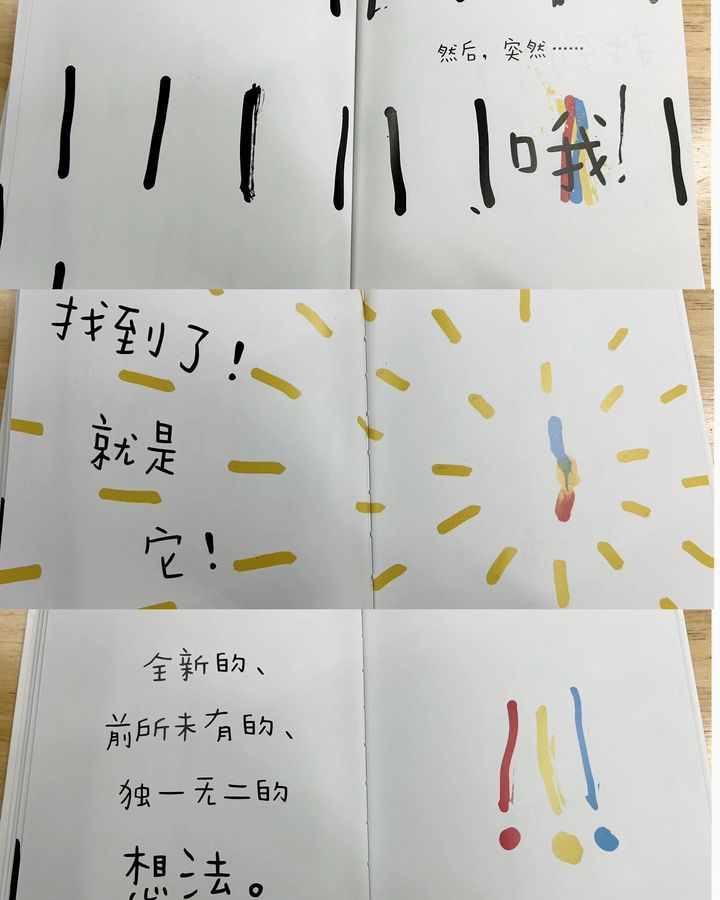 然后，突然……
哦！
找到了！
就是
它！
全新的、
前所未有的、
独一无二的
想法。